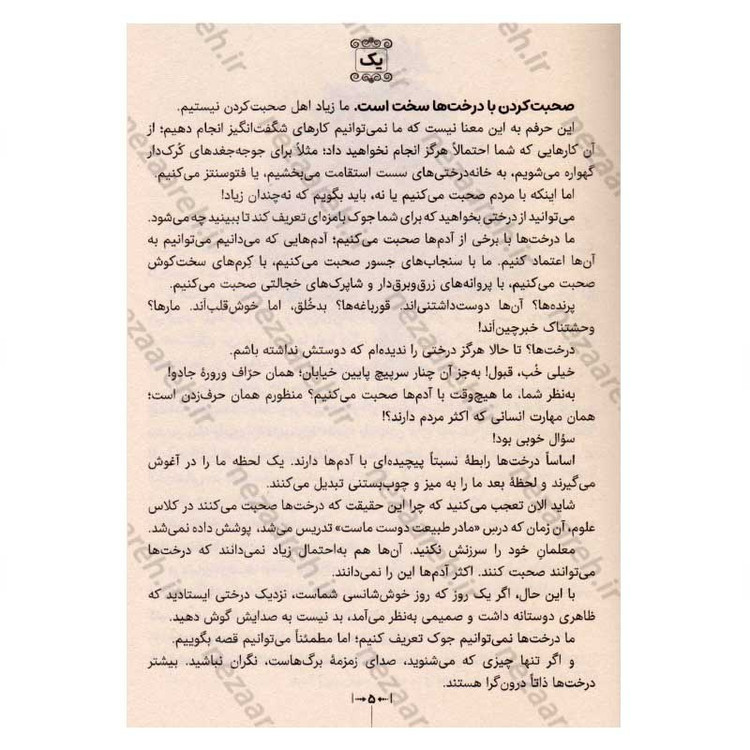 یک
صحبت‌کردن با درخت‌ها سخت است. ما زیاد اهل صحبت‌کردن نیستیم.
این حرفم به این معنا نیست که ما نمی‌توانیم کارهای شگفت‌انگیز انجام دهیم؛ از
آن کارهایی که شما احتمالاً هرگز انجام نخواهید داد؛ مثلاً برای جوجه‌جغدهای کُرک‌دار
گهواره می‌شویم، به خانه‌درختی‌های سست استقامت می‌بخشیم، یا فتوسنتز می‌کنیم.
اما اینکه با مردم صحبت می‌کنیم یا نه، باید بگویم که نه‌چندان زیاد!
می‌توانید از درختی بخواهید که برای شما جوک بامزه‌ای تعریف کند تا ببینید چه می‌شود.
ما درخت‌ها با برخی از آدم‌ها صحبت می‌کنیم؛ آدم‌هایی که می‌دانیم می‌توانیم به
آن‌ها اعتماد کنیم. ما با سنجاب‌های جسور صحبت می‌کنیم، با کِرم‌های سخت‌کوش
صحبت می‌کنیم، با پروانه‌های زرق‌وبرق‌دار و شاپرک‌های خجالتی صحبت می‌کنیم.
پرنده‌ها؟ آن‌ها دوست‌داشتنی‌اند. قورباغه‌ها؟ بدخُلق، اما خوش‌قلب‌اند. مارها؟
وحشتناک خبرچین‌اند!
درخت‌ها؟ تا حالا هرگز درختی را ندیده‌ام که دوستش نداشته باشم.
خیلی خُب، قبول! به‌جز آن چنار سرپیچ پایین خیابان؛ همان حرّاف وروره جادو!
به‌نظر شما، ما هیچ‌وقت با آدم‌ها صحبت می‌کنیم؟ منظورم همان حرف‌زدن است؛
همان مهارت انسانی که اکثر مردم دارند؟!
سؤال خوبی بود!
اساساً درخت‌ها رابطهٔ نسبتاً پیچیده‌ای با آدم‌ها دارند. یک لحظه ما را در آغوش
می‌گیرند و لحظهٔ بعد ما را به میز و چوب‌بستنی تبدیل می‌کنند.
شاید الان تعجب می‌کنید که چرا این حقیقت که درخت‌ها صحبت می‌کنند در کلاس
علوم، آن زمان که درسِ «مادر طبیعت دوست ماست» تدریس می‌شد، پوشش داده نمی‌شد.
معلمانِ خود را سرزنش نکنید. آن‌ها هم به‌احتمال زیاد نمی‌دانند که درخت‌ها
می‌توانند صحبت کنند. اکثر آدم‌ها این را نمی‌دانند.
با این حال، اگر یک روز که روز خوش‌شانسی شماست، نزدیک درختی ایستادید که
ظاهری دوستانه داشت و صمیمی به‌نظر می‌آمد، بد نیست به صدایش گوش دهید.
ما درخت‌ها نمی‌توانیم جوک تعریف کنیم؛ اما مطمئناً می‌توانیم قصه بگوییم.
و اگر تنها چیزی که می‌شنوید، صدای زمزمهٔ برگ‌هاست، نگران نباشید. بیشتر
درخت‌ها ذاتاً درون‌گرا هستند.
۵
nezaareh.ir